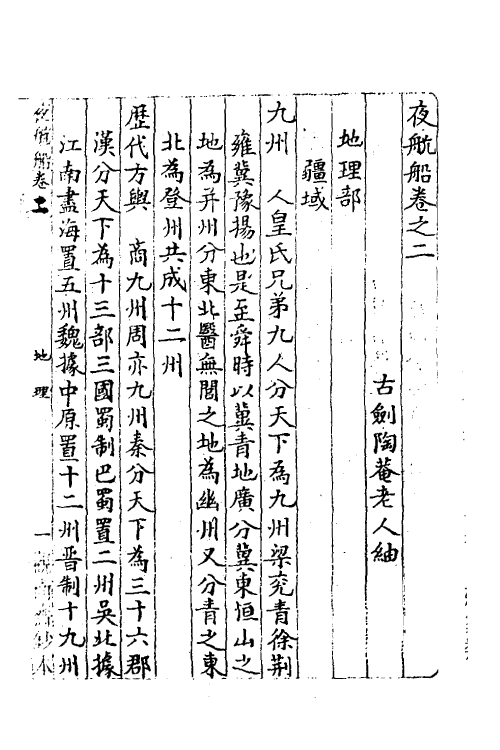 夜航船卷之二
古劍陶菴老人紬
地理部
疆域
九州　人皇氏兄弟九人分天下為九州梁兖青徐荆
雍冀豫揚也是至舜時以冀青地廣分冀東恒山之
地為并州分東北醫無閭之地為幽州又分青之東
北為登州共成十二州
歷代方輿　商九州周亦九州秦分天下為三十六郡
漢分天下為十三部三國蜀制巴蜀置二州吳北據
江南盡海置五州魏據中原置十二州晋制十九州
夜航船卷二　地理　一　鈔本